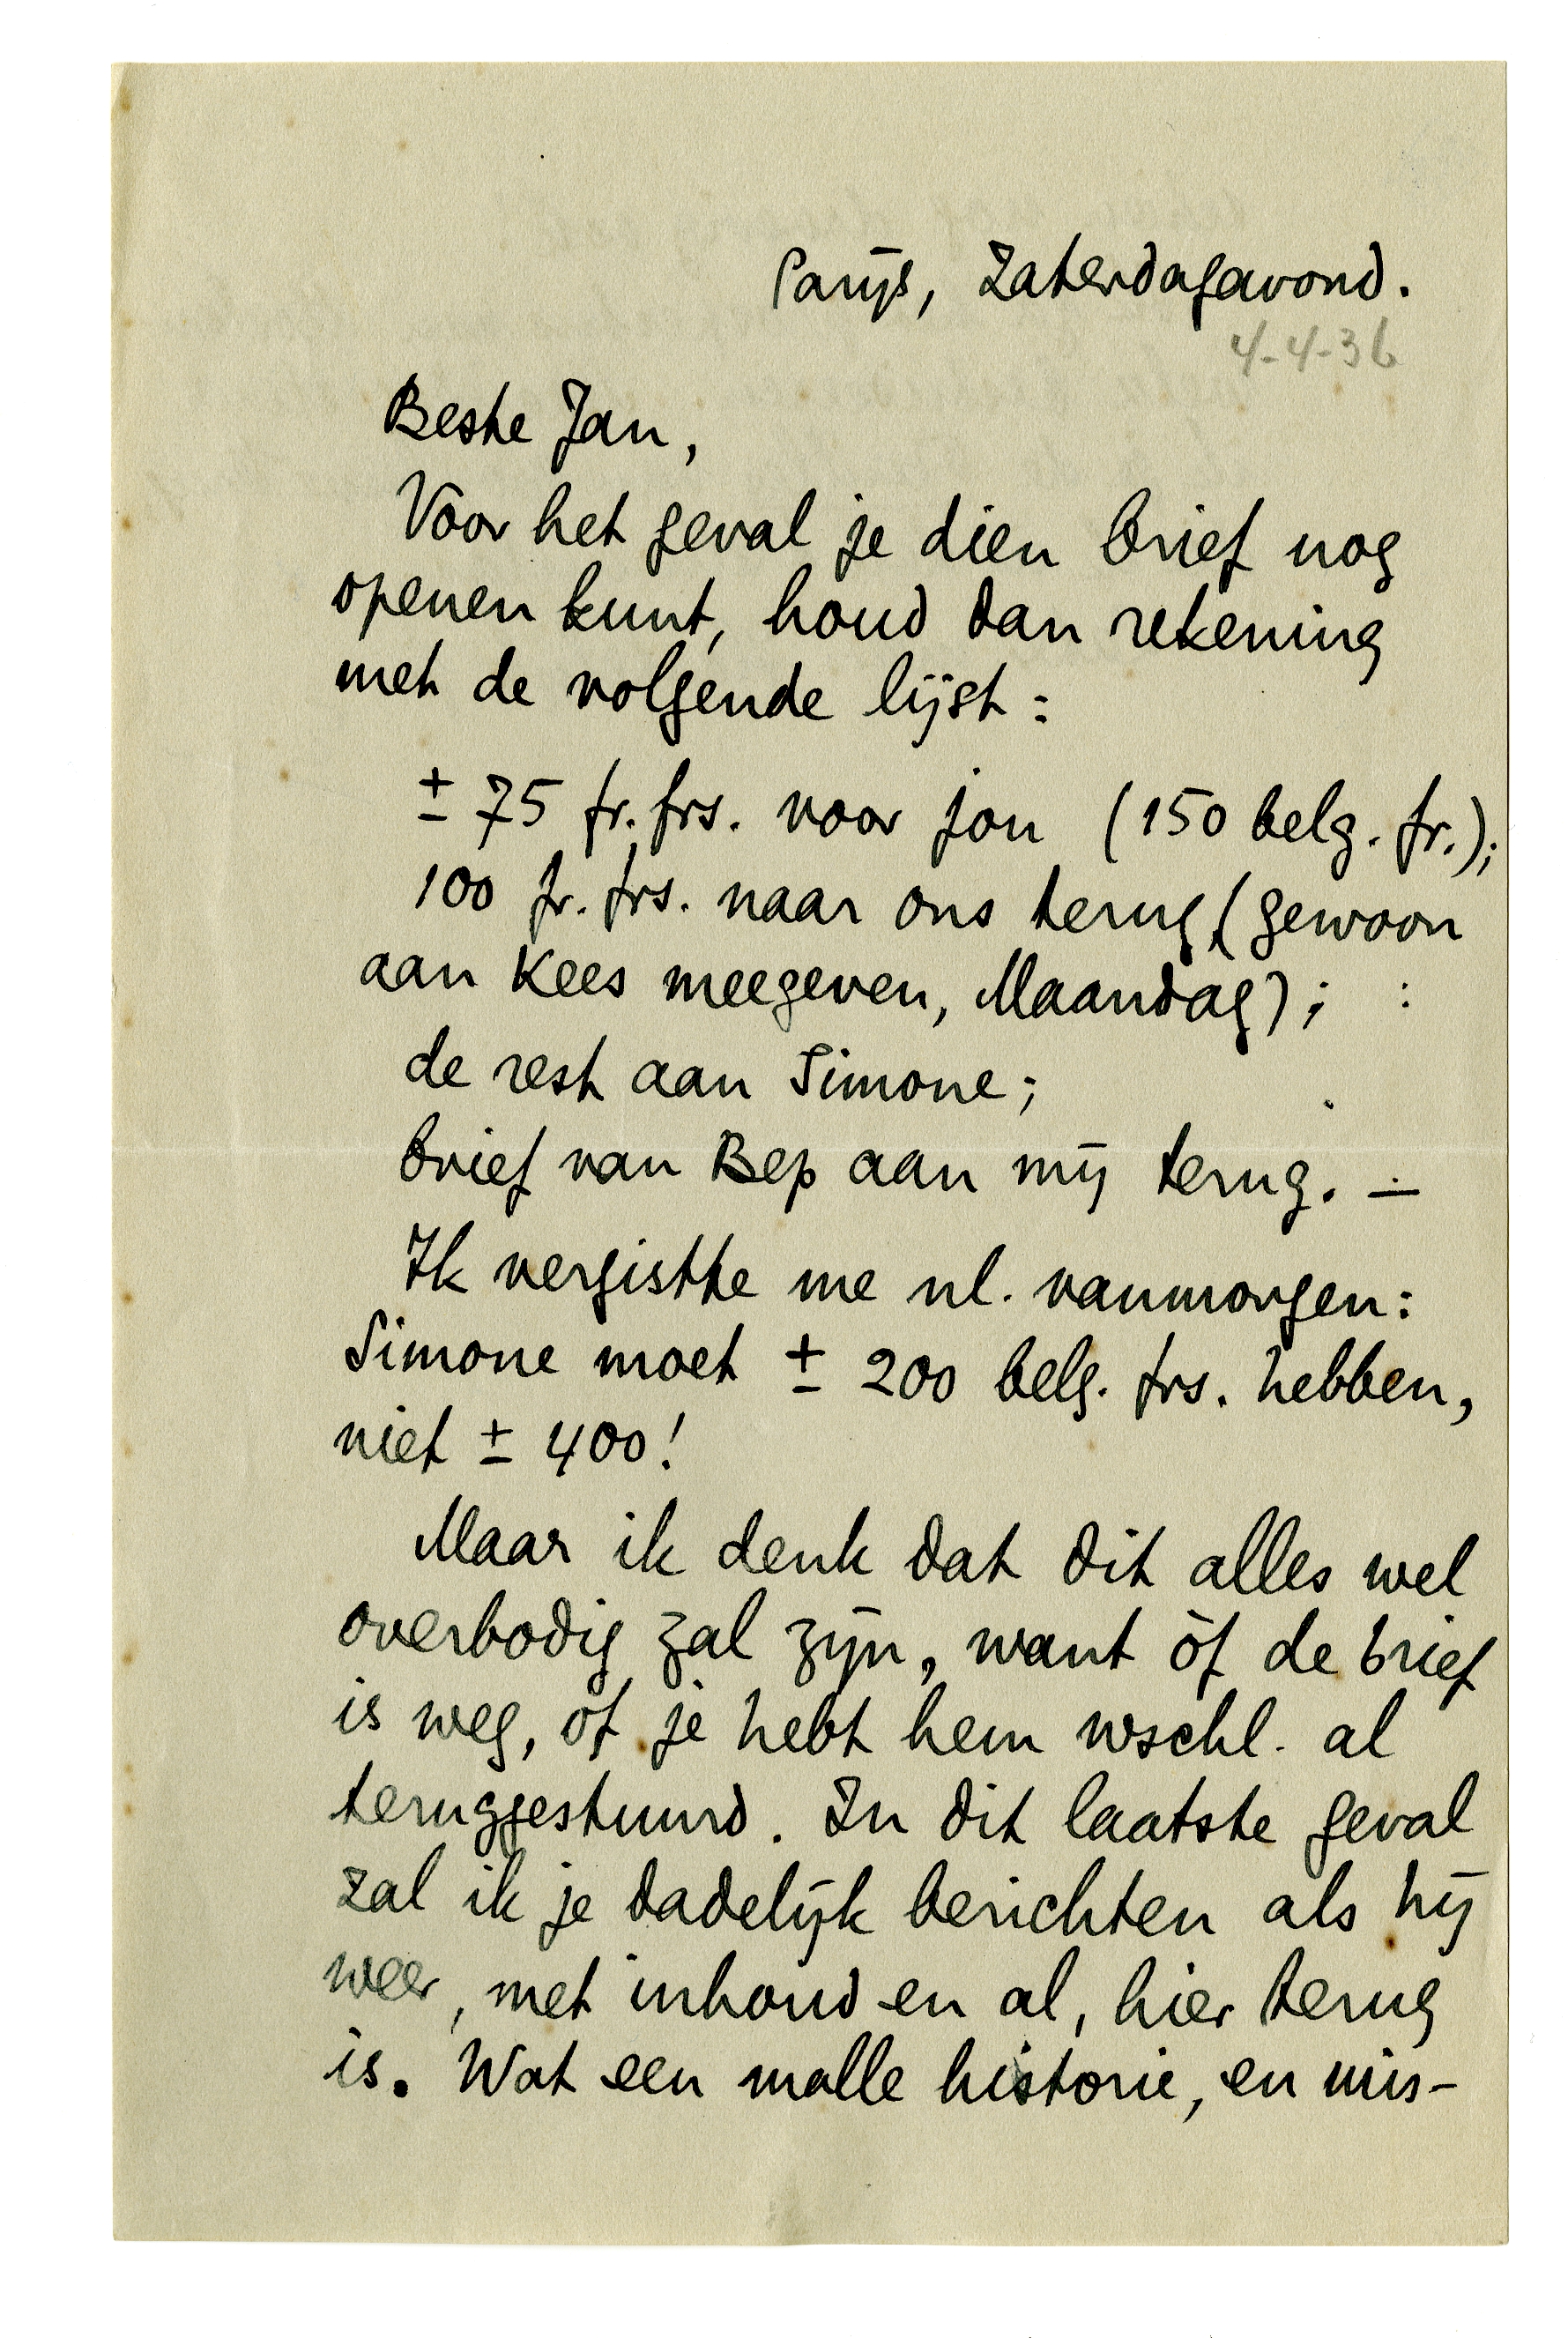 Parijs, Zaterdagavond.
4-4-36
Beste Jan,
Voor het geval je dien brief nog
openen kunt, houd dan rekening
met de volgende lijst:
± 75 fr. frs. voor jou (150 belg. fr.);
100 fr. frs. naar ons terug (gewoon
aan Kees meegeven, Maandag);
de rest aan Simone;
brief van Bep aan mij terug. —
Ik vergistte me nl. vanmorgen:
Simone moet ± 200 belg. frs. hebben,
niet ± 400!
Maar ik denk dat dit alles wel
overbodig zal zijn, want òf de brief
is weg, òf je hebt hem wschl. al
teruggestuurd. In dit laatste geval
zal ik je dadelijk berichten als hij
weer, met inhoud en al, hier terug
is. Wat een malle historie, en mis-